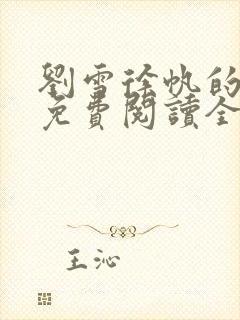 劉雪徐帆的
免費閱讀全
王沁